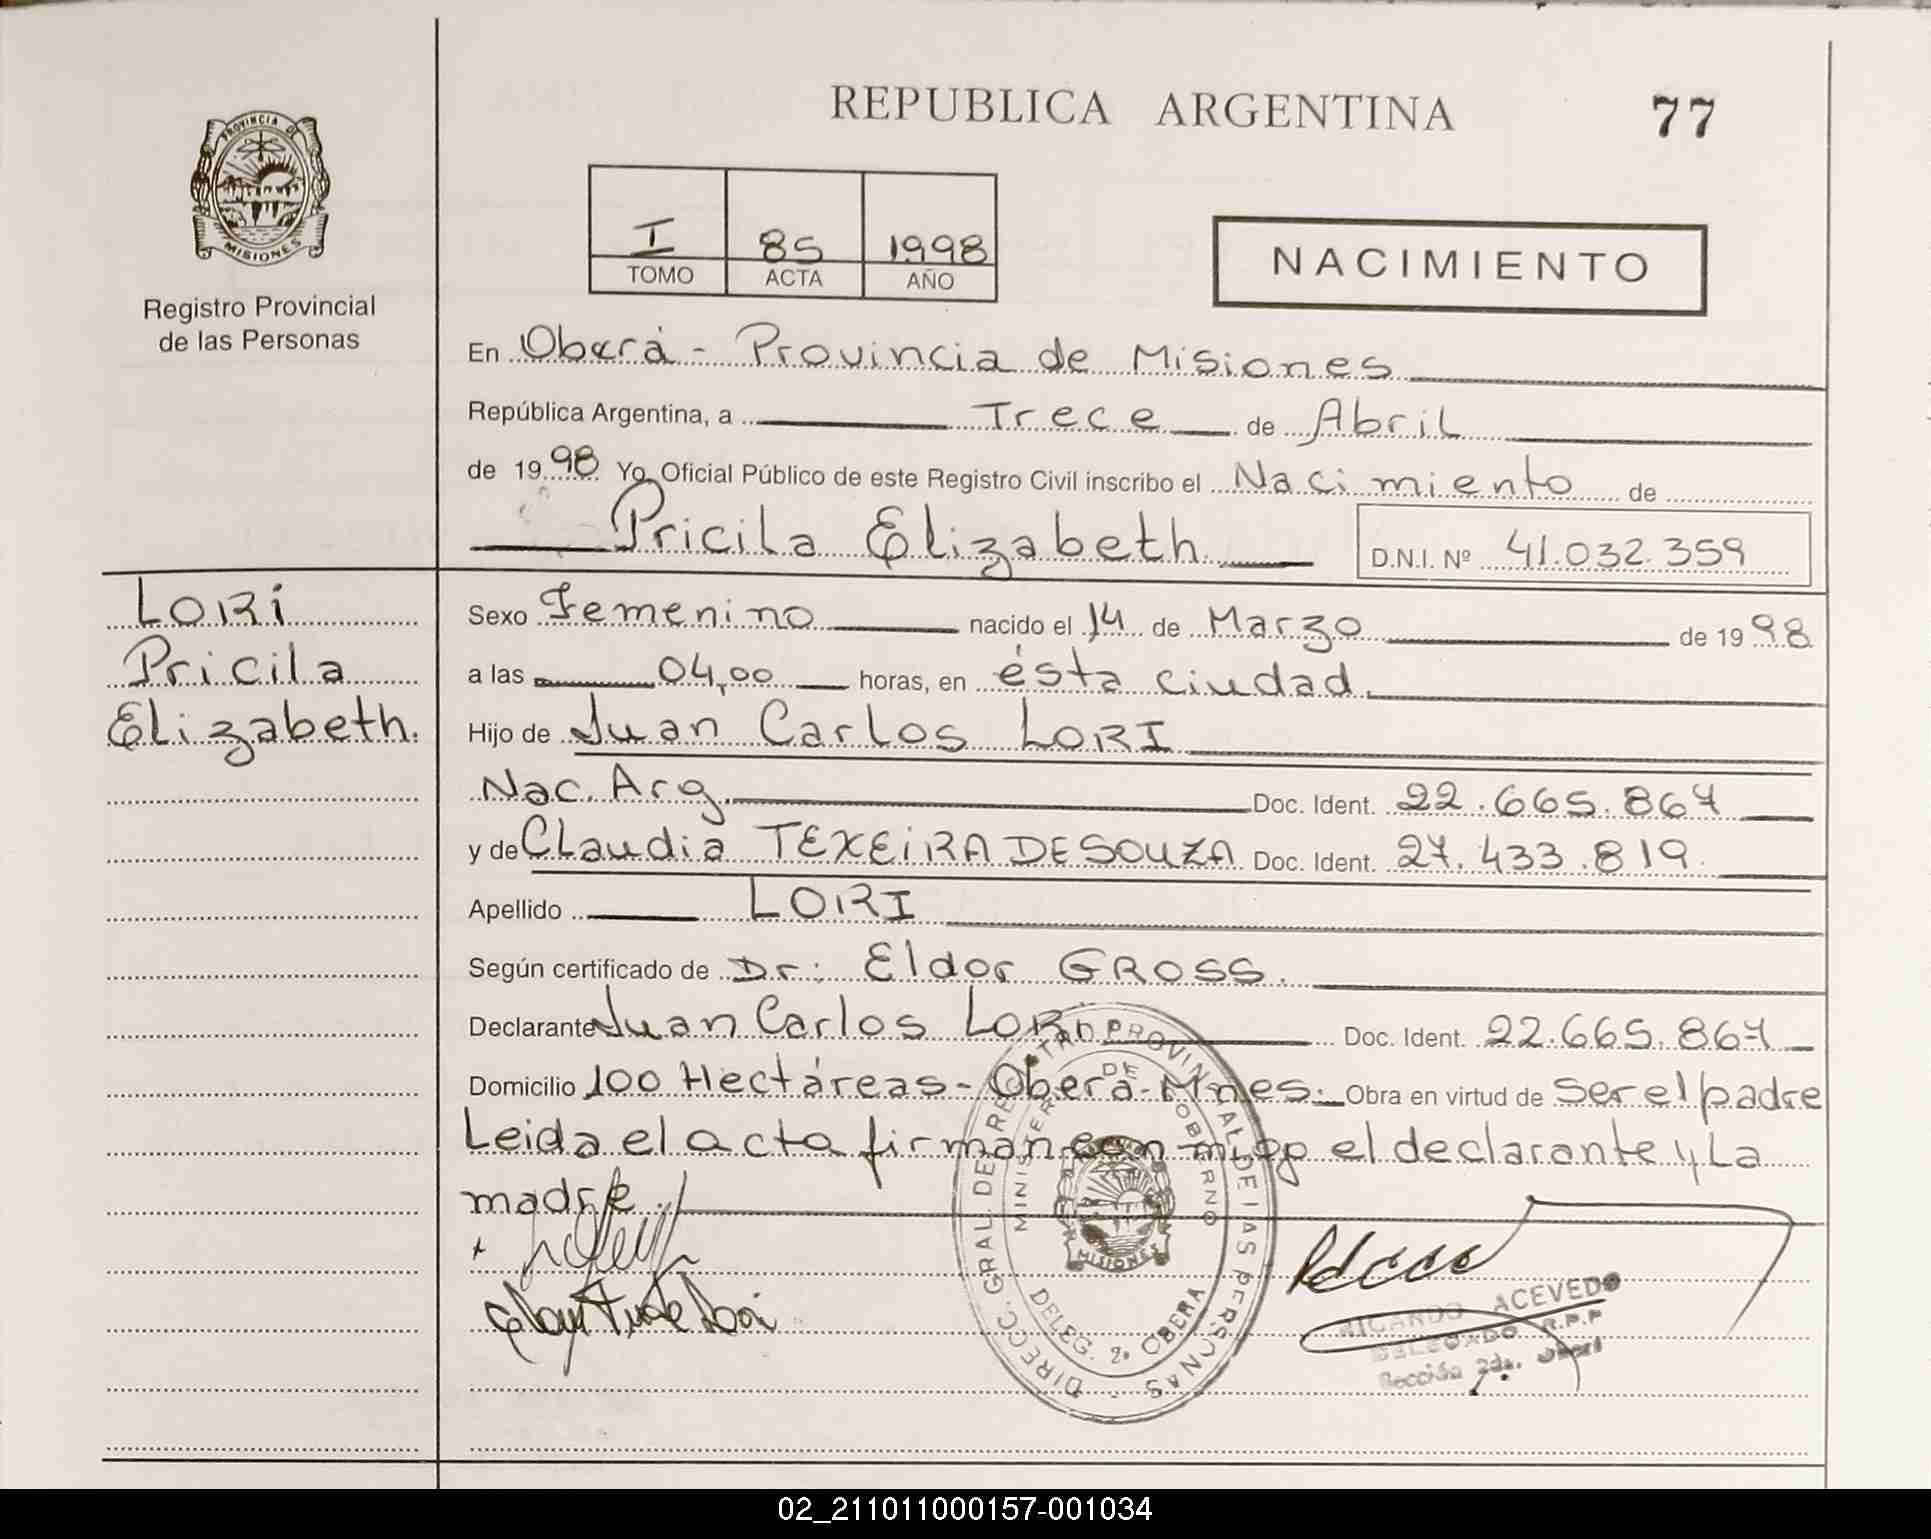 REPUBLICA ARGENTINA
77
PROVINCIA DE
MISIONES
Registro Provincial
de las Personas
I 85 1998
TOMO ACTA AÑO
NACIMIENTO
En Oberá - Provincia de Misiones
República Argentina, a Trece de Abril
de 1998 Yo, Oficial Público de este Registro Civil inscribo el Nacimiento de
Pricila Elizabeth D.N.I. Nº 41.032.359
LORI
Pricila
Elizabeth.
Sexo Femenino nacido el 14 de Marzo de 1998
a las 04,00 horas, en ésta ciudad.
Hijo de Juan Carlos LORI
Nac. Arg. Doc. Ident. 22.665.867
y de Claudia TEXEIRA DE SOUZA Doc. Ident. 27.433.819
Apellido LORI
Según certificado de Dr: Eldor GROSS.
Declarante Juan Carlos LORI Doc. Ident. 22.665.867
Domicilio 100 Hectáreas - Oberá - Mnes. Obra en virtud de ser el padre
Leida el acta firman con migo el declarante y La
madre.
DIRECC. GRAL. DE REGISTRO PROVINCIAL DE LAS PERSONAS
MINISTERIO DE GOBIERNO
MISIONES
DELEG. 2º OBERA
RICARDO ACEVEDO
DELEGADO R.P.P
Sección 2da. Oberá
02_211011000157-001034